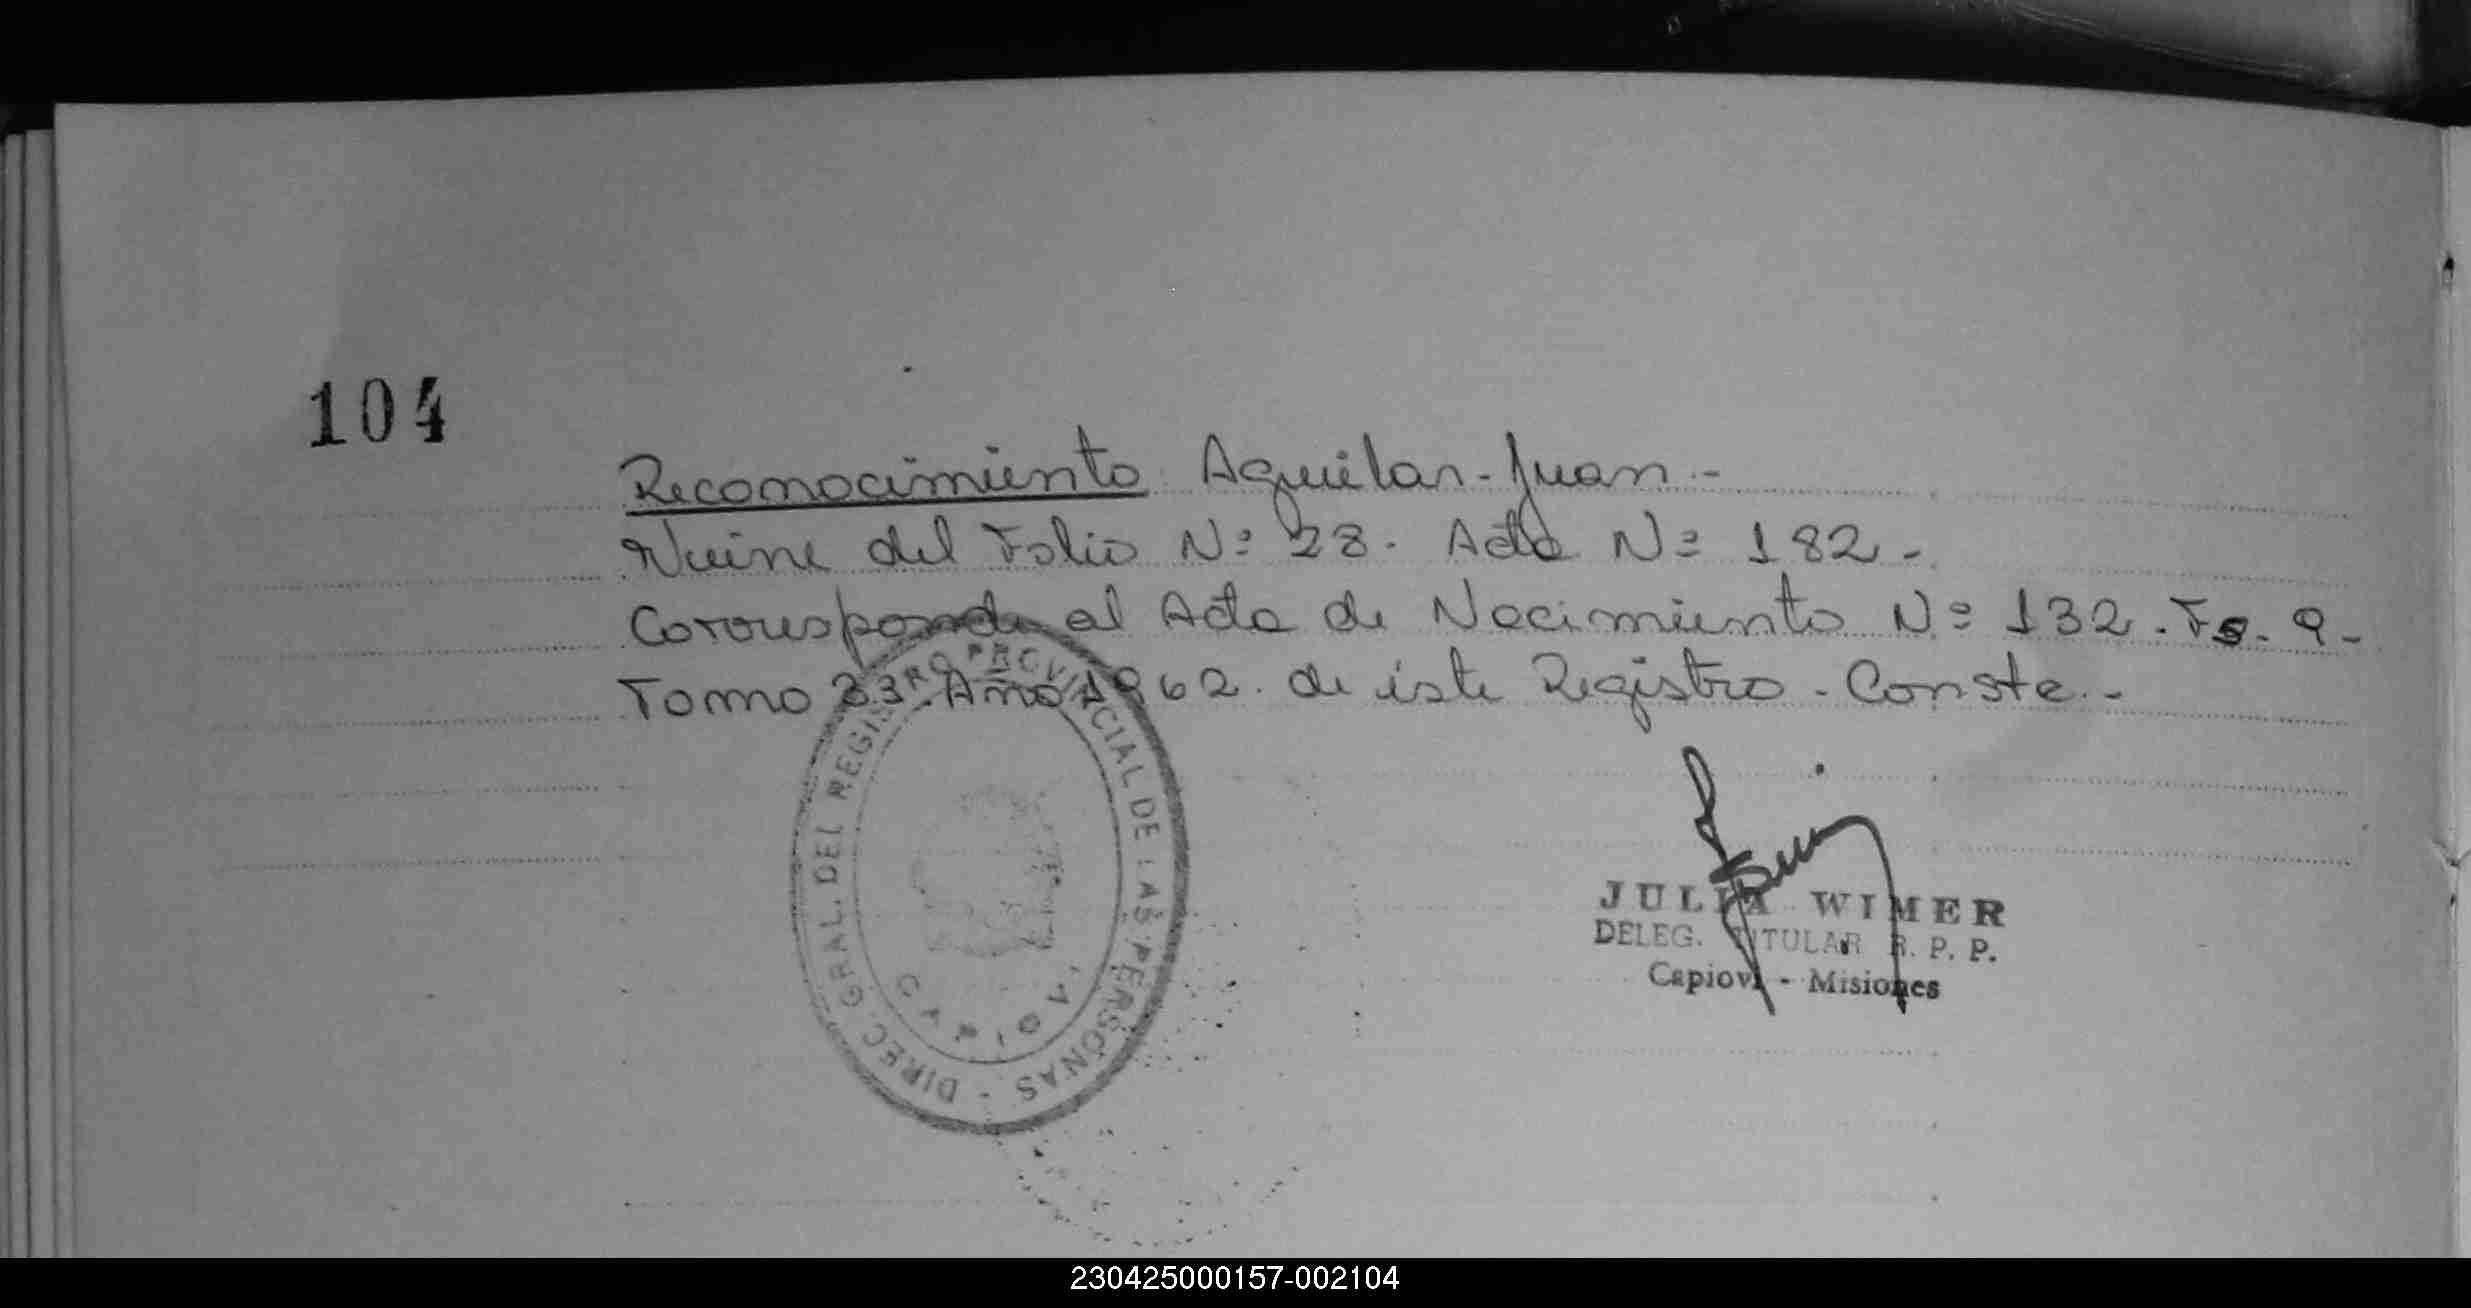 104
Reconocimiento Aguilar - Juan. -
Viene del Folio Nº 28. Acta Nº 182. -
Corresponde al Acta de Nacimiento Nº 132. Fo. 9 -
Tomo 33. Año 1962. de este Registro. - Conste. -
DIREC. GRAL. DEL REGISTRO PROVINCIAL DE LAS PERSONAS -
CAPIOVI
JULIA WIMER
DELEG. TITULAR R. P. P.
Capiovi - Misiones
230425000157-002104